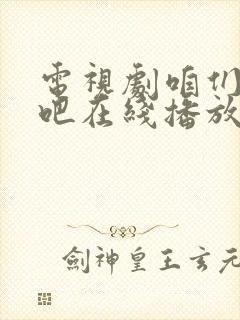 電視劇咱们
吧在綫播放
劍神皇王玄元